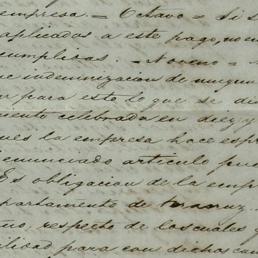 empresa = Octavo = Si s
aplicados a este pago, no en
cumplirse. = Noveno =
de indemnizacion de ningun
para esto lo que se dis
mento celebrada en diez y
ques la empresa hace esp
enunciado articulo
Es obligacion de la emp
partamento de
respecto de los cuales
para con dichos